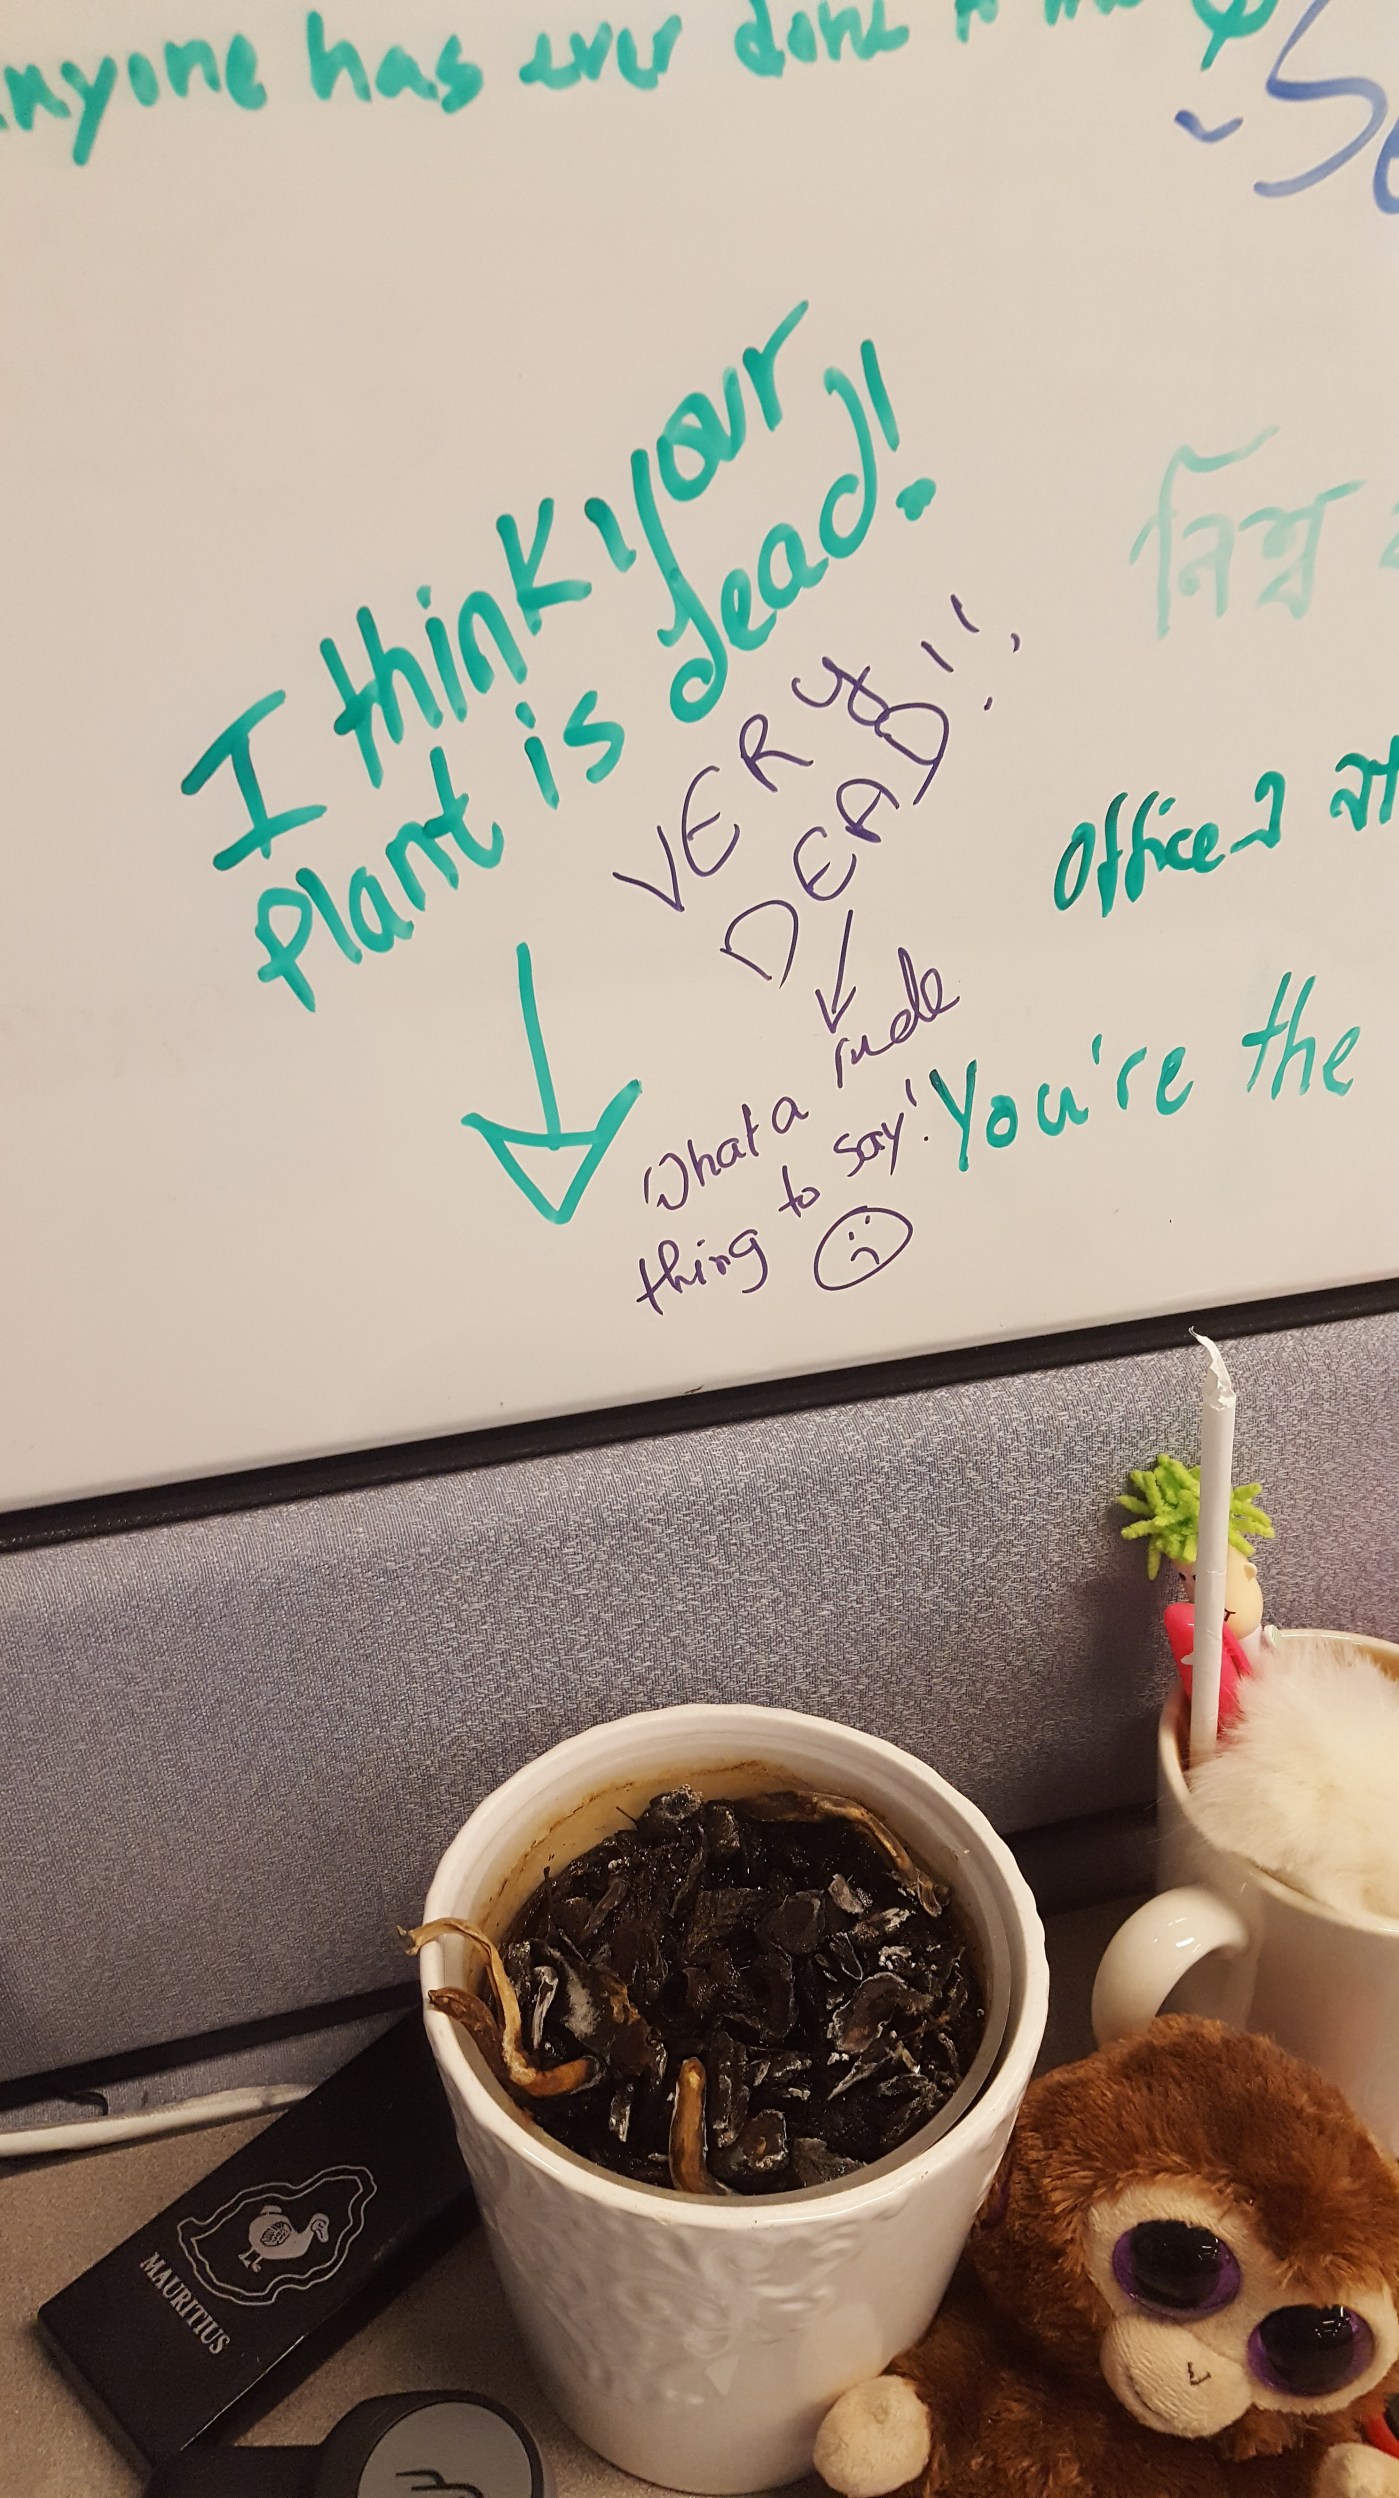 nyone has ever done
I think your
plant is dead!
VERY
DEAD!!
What a rude
thing to say!
নিশ্ব
Office-এ
You're the
MAURITIUS